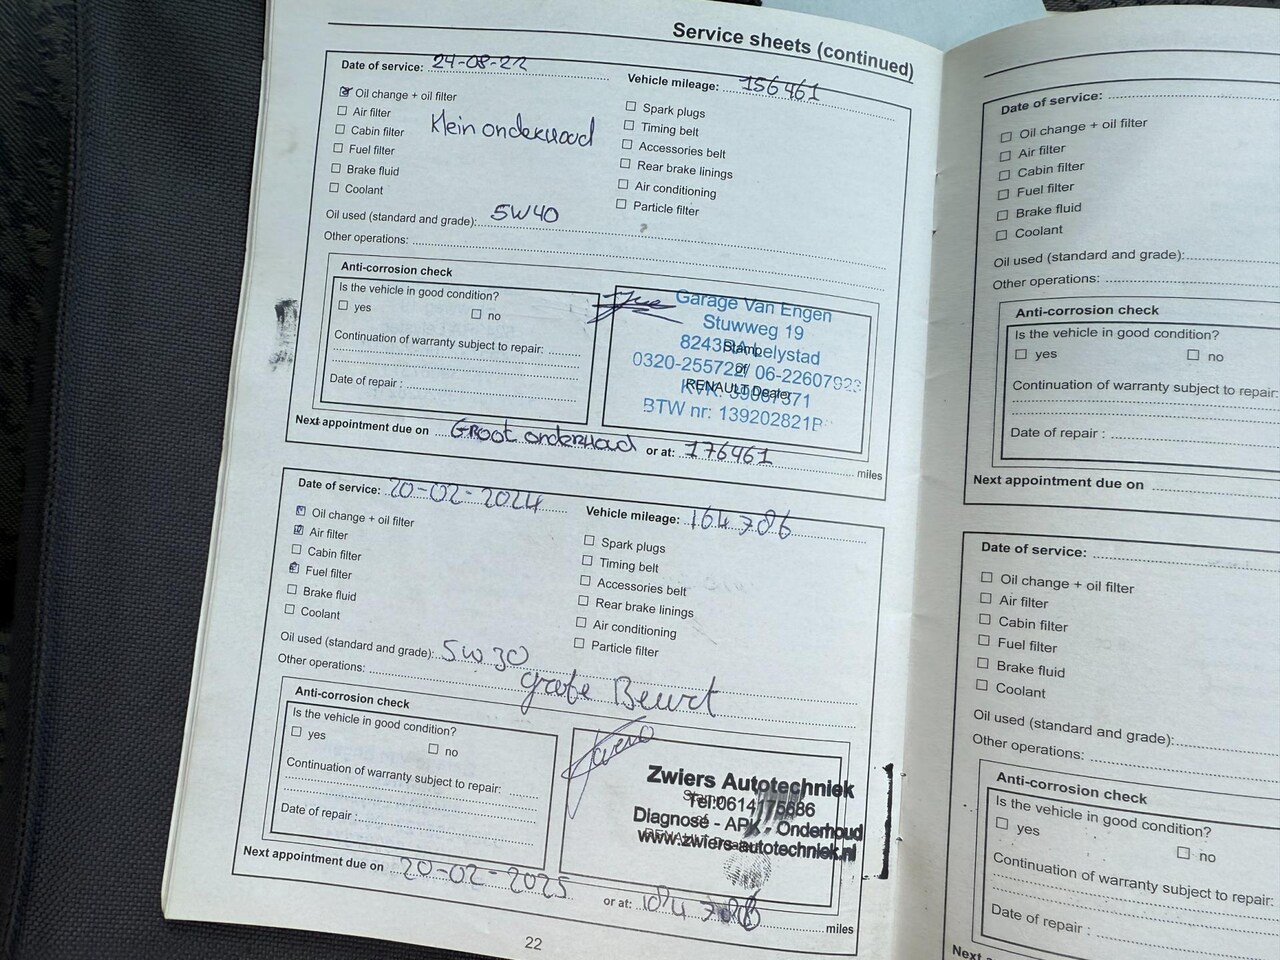 Service sheets (continued)
Date of service: 24-08-22
Vehicle mileage: 156461
Oil change + oil filter
Air filter
Cabin filter
Fuel filter
Brake fluid
Coolant
Klein onderhoud
Spark plugs
Timing belt
Accessories belt
Rear brake linings
Air conditioning
Particle filter
Oil used (standard and grade): 5W40
Other operations:
Anti-corrosion check
Is the vehicle in good condition?
yes
no
Continuation of warranty subject to repair:
Date of repair :
Garage Van Engen
Stuwweg 19
Lelystad
0320-255722/ 06-22607923
BTW nr: 139202821B
Stamp
of
RENAULT Dealer
Next appointment due on Groot onderhoud or at: 176461 miles
Date of service: 20-02-2024
Vehicle mileage: 164786
Oil change + oil filter
Air filter
Cabin filter
Fuel filter
Brake fluid
Coolant
Spark plugs
Timing belt
Accessories belt
Rear brake linings
Air conditioning
Particle filter
Oil used (standard and grade): 5W30
Other operations: grote Beurt
Anti-corrosion check
Is the vehicle in good condition?
yes
no
Continuation of warranty subject to repair:
Date of repair :
Zwiers Autotechniek
Tel:0614175686
Diagnose - APK - Onderhoud
www.zwiers-autotechniek.nl
Next appointment due on 20-02-2025 or at: miles
22
Date of service:
Oil change + oil filter
Air filter
Cabin filter
Fuel filter
Brake fluid
Coolant
Oil used (standard and grade):
Other operations:
Anti-corrosion check
Is the vehicle in good condition?
yes
no
Continuation of warranty subject to repair:
Date of repair :
Next appointment due on
Date of service:
Oil change + oil filter
Air filter
Cabin filter
Fuel filter
Brake fluid
Coolant
Oil used (standard and grade):
Other operations:
Anti-corrosion check
Is the vehicle in good condition?
yes
no
Continuation of warranty subject to repair:
Date of repair :
Next